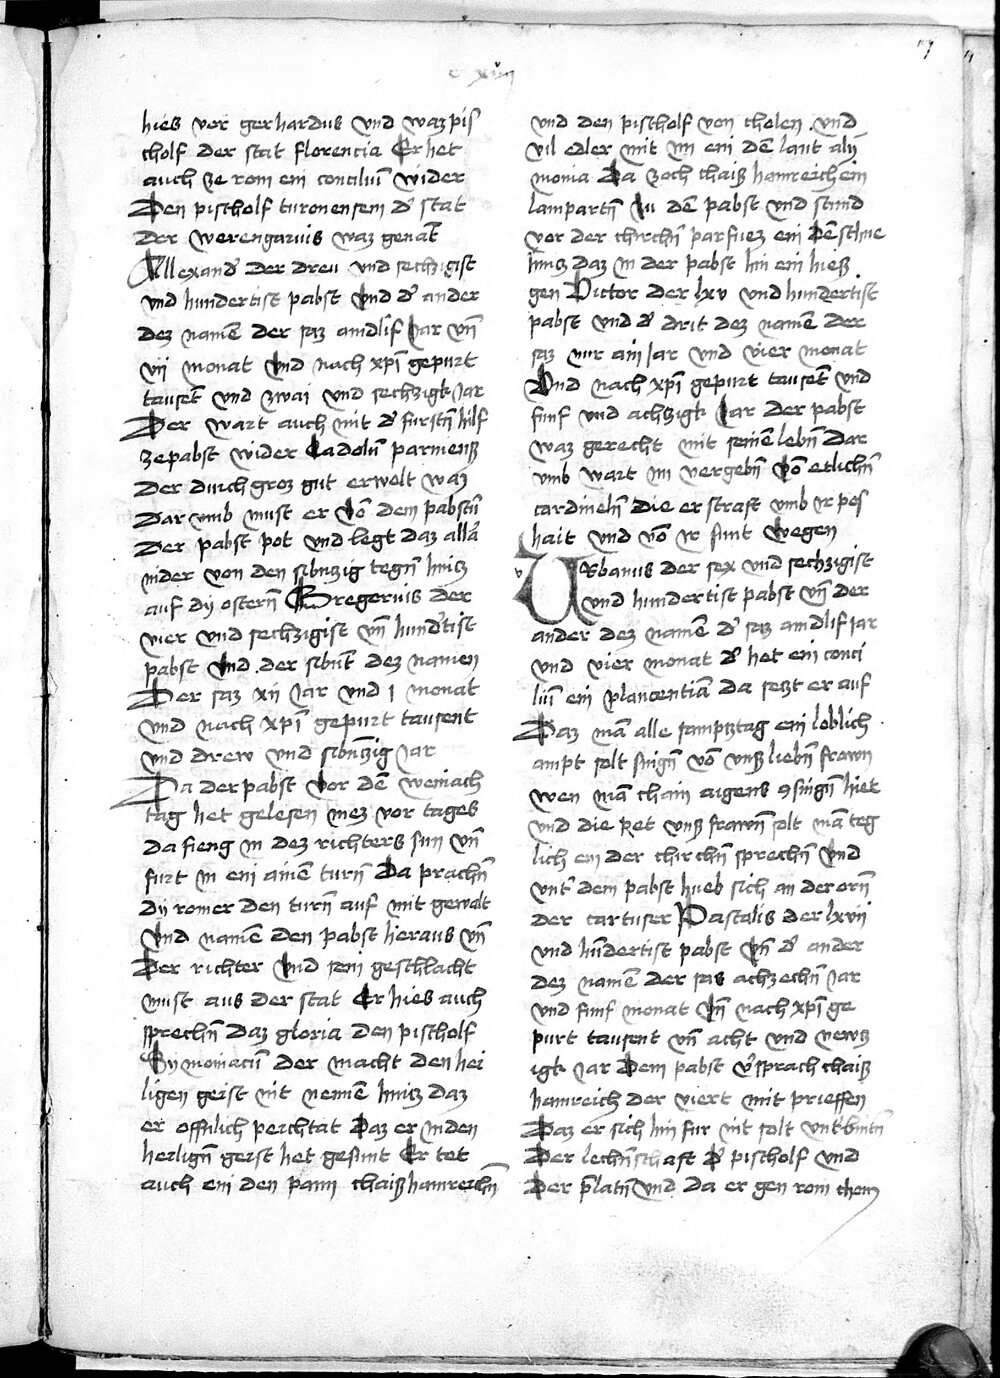 c xviij
hies vor gerhardus vnd waz pis
cholf der stat florencia Er het
auch ze rom ein conciliū wider
Den pischolf turonensem d' stat
Der werengarius waz genāt
Allexand' der dreu vnd sechzigist
vnd hundertist pabst Vnd d' ander
dez namē der saz aindlif Jar vn̄
vij monat Vnd nach xp̄i gepurt
tausēt vnd zwai vnd sechzigk Jar
Der wart auch mit d' furstn̄ hilf
ze pabst wider Cadolū parmensz
Der durch groz gut erwelt waz
Dar vmb must er vō dem pabstū
Der pabst pot vnd legt daz allā
nider von den sibnzig tegn̄ hintz
auf dy ostern̄ Gregorius der
vier vnd sechzigist vn̄ hund'tist
pabst Vnd der sibnt dez namen
Der saz xij Jar vnd j monat
vnd nach xp̄i gepurt tausent
vnd drew vnd sibnzig Jar
Da der pabst vor dē weinach
tag het gelesen mez vor tages
da fieng in dez richters sun vn̄
furt in ein ainē turn̄ Da prachn̄
dy romer den turn̄ auf mit gewalt
vnd namē den pabst heraus vn̄
Der richter Vnd sein geschlacht
must aus der stat Er hies auch
sprechn̄ daz gloria den pischolf
Symoniacū der macht den hei
ligen geist nit nennē hintz daz
er offnlich perchtat Daz er in den
heilign̄ geist het gesunt Er tet
auch ein den pann chaisz hainreichn̄
vnd den pischolf von cholen vnd
vil edler mit im ein dē lant aly
monia Da zoch chaisz hainreich ein
lampartn̄ zu dē pabst vnd stund
vor der chirchn̄ parfuez ein dē schne
hintz daz in der pabst hin ein hiesz
gen Victor der lxv vnd hundertist
pabst vnd d' drit dez namē der
saz nur ain Jar vnd vier monat
Vnd nach xp̄i gepurt tausēt vnd
funf vnd achzigk Jar Der pabst
waz gerecht mit seinē lebn̄ Dar
vmb wart im vergebn̄ vō etlichn̄
cardineln̄ die er straft vmb ir pos
hait vnd vō ir sunt wegen
Vrbanus der sex vnd sechzigist
vnd hundertist pabst vn̄ der
ander dez namē d' saz aindlif Jar
vnd vier monat d' het ein conci
liū ein plancentiā da sezt er auf
Daz mā alle sampztag ein loblich
ampt solt singn̄ vō vnsz liebn̄ frawn
wen mā chain aigens 9 singn̄ hiet
vnd die pet vnsz frawn̄ solt mā teg
lich ein der chirchn̄ sprechn̄ Vnd
vnt' dem pabst hueb sich an der orn̄
der cartuser Pastalis der lxvij
vnd hūdertist pabst vn̄ d' ander
dez namē der sas achzechn̄ Jar
vnd funf monat Vn̄ nach xp̄i ge
purt tausent vn̄ acht vnd newz
igk Jar Dem pabst v'sprach chaisz
hainreich der viert mit prieffen
Daz er sich hin fur nit solt vnt'bintn̄
Der lechnschaft d' pischolf vnd
Der p̄latn̄ vnd da er gen rom chem